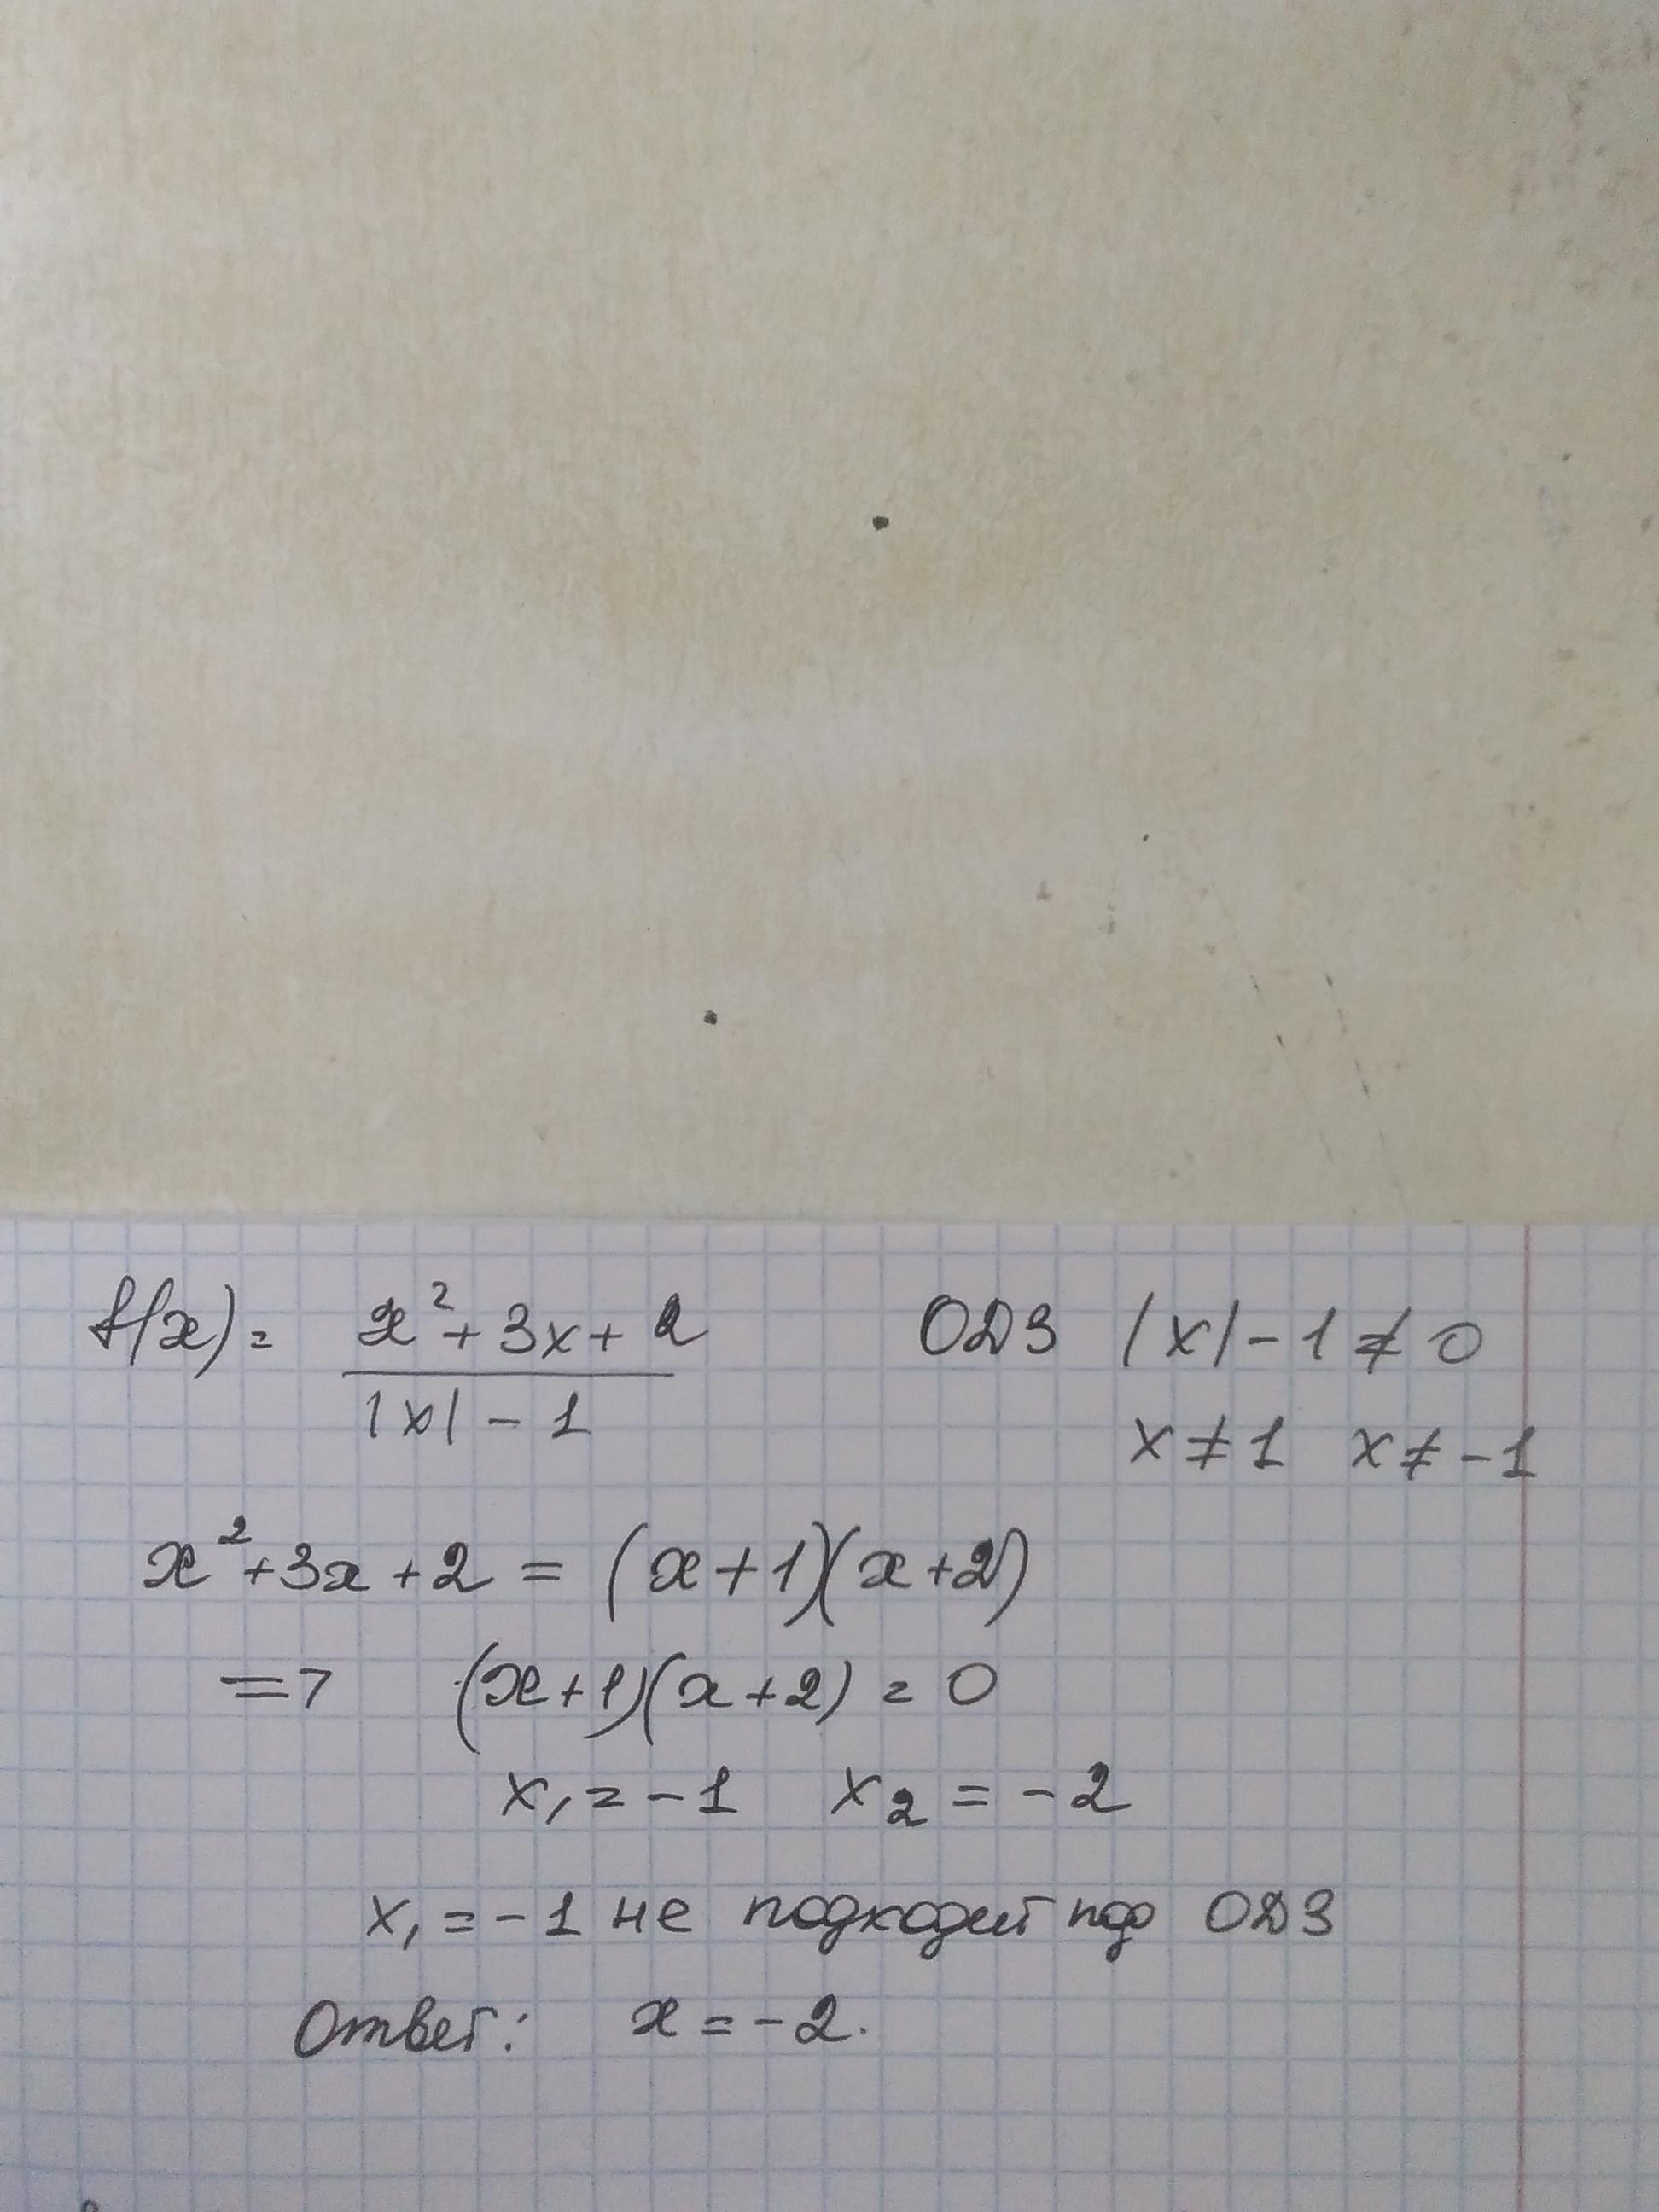 f(x) = x² + 3x + 2 / |x| - 1 ОДЗ |x| - 1 ≠ 0
x ≠ 1 x ≠ -1
x² + 3x + 2 = (x + 1)(x + 2)
=> (x + 1)(x + 2) = 0
x₁ = -1 x₂ = -2
x₁ = -1 не подходит под ОДЗ
Ответ: x = -2.